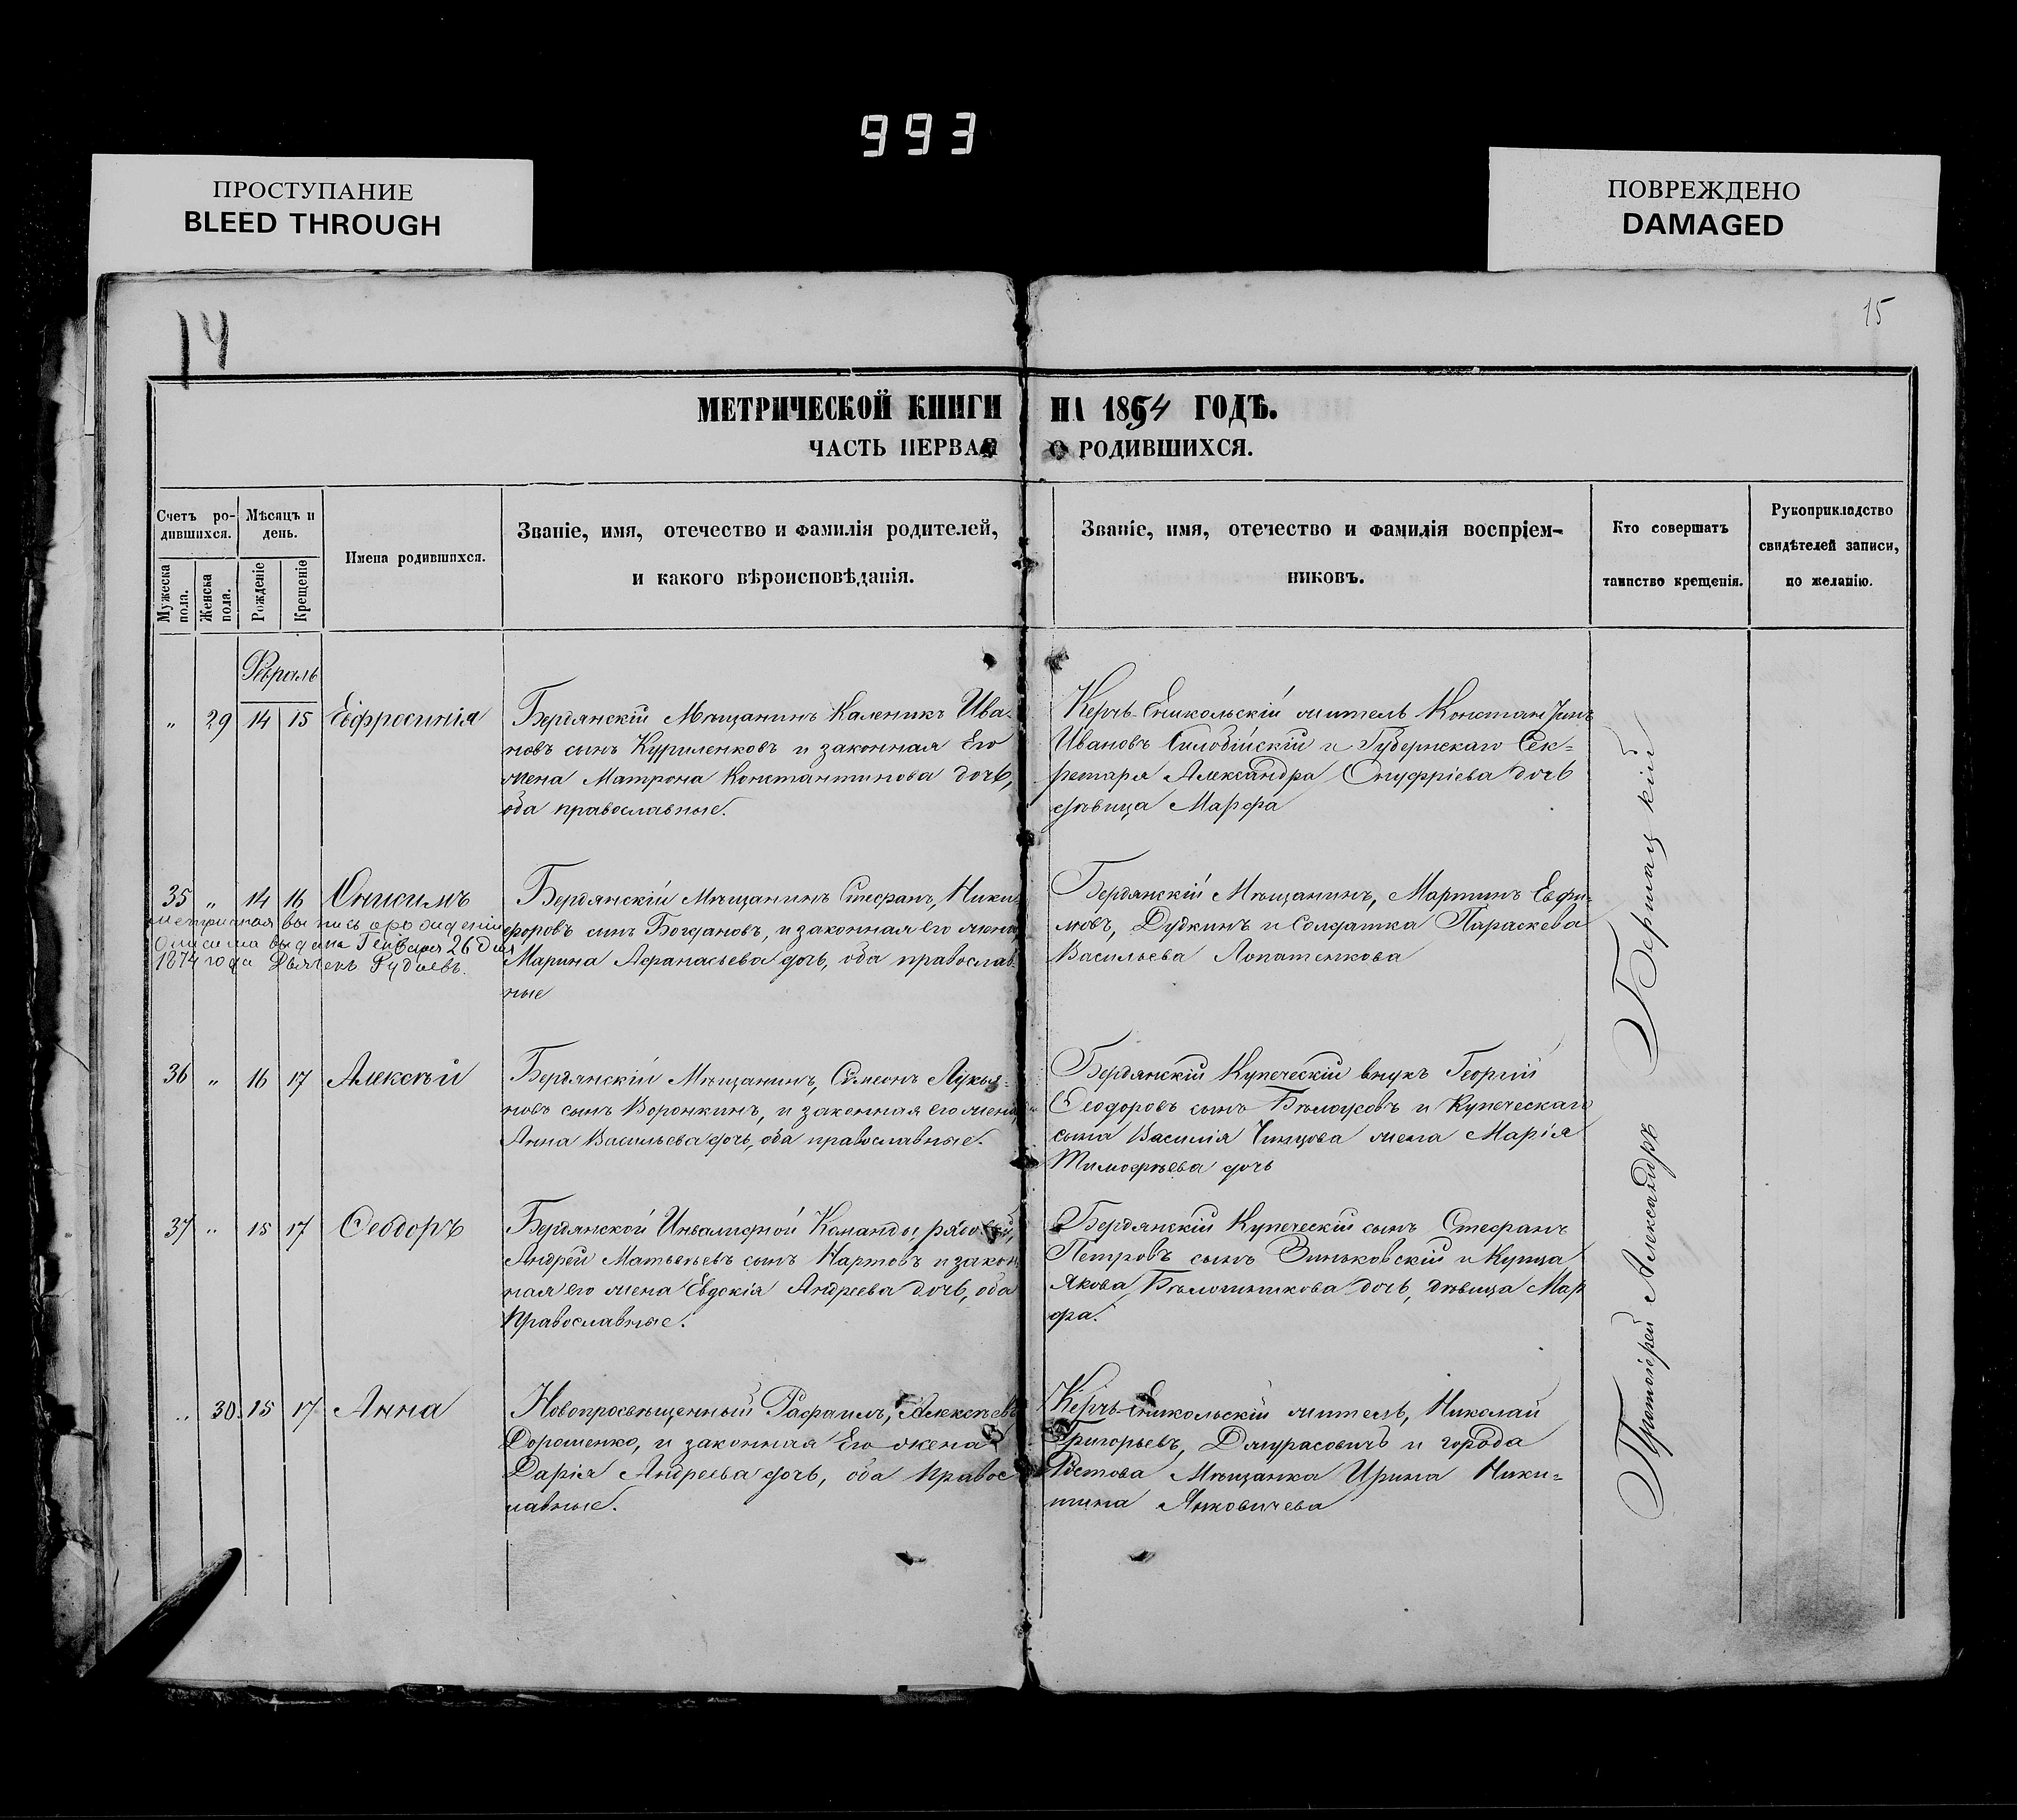 993
ПРОСТУПАНИЕ
BLEED THROUGH
ПОВРЕЖДЕНО
DAMAGED
14
15
МЕТРИЧЕСКОЙ КНИГИ НА 1854 ГОДЪ.
ЧАСТЬ ПЕРВАЯ О РОДИВШИХСЯ.
Счетъ ро-
дившихся.
Мужеска пола.
Женска пола.
Мѣсяцъ и
день.
Рожденіе
Крещеніе
Имена родившихся.
Званіе, имя, отечество и фамилія родителей,
и какого вѣроисповѣданія.
Званіе, имя, отечество и фамилія воспріем-
никовъ.
Кто совершатъ
таинство крещенія.
Рукоприкладство
свидѣтелей записи,
по желанію.
Февраль
„ 29 14 15 Евфросинія
Бердянскій Мѣщанинъ Каленикъ Ива-
новъ сынъ Куриленковъ и законная Его
жена Матрона Константинова дочь,
оба православные.
Керчь-Еникольскій житель Константинъ
Ивановъ и Губернскаго Сек=
ретаря Александра Онуфріева дочь
дѣвица Марфа
35 „ 14 16 Онисимъ
метричная выпись о рождении
Онисима выдана Генваря 26 дня
1874 года Рудаевъ.
Бердянскій Мѣщанинъ Стефанъ, Ники
форовъ сынъ Богдановъ, и законная его жена
Марина Афанасьева дочь, оба православ-
ные
Бердянскій Мѣщанинъ, Мартинъ Евфи-
мовъ, Дудкинъ и Солдатка Параскева
Васильева Лопатенкова
36 „ 16 17 Алексѣй
Бердянскій Мѣщанинъ, Симеонъ Лукья-
новъ сынъ Воронкинъ, и законная его жена
Анна Васильева дочь, оба православные.
Бердянскій Купеческій внукъ Георгій
Феодоровъ сынъ Бѣлоусовъ и Купеческаго
сына Василія жена Марія
Тимофѣева дочь
37 „ 15 17 Феодоръ
Бердянской Инвалидной Команды рядовой,
Андрей Матвѣевъ сынъ Картовъ и закон
ная его жена Евдокія Андреева дочь, оба
Православные.
Бердянскій Купеческій сынъ Стефанъ
Петровъ сынъ Зиньковскій и Купца
Якова дочь, дѣвица Мар
фа.
„ 30 15 17 Анна
Новопросвѣщенный Рафаилъ, Алексѣевъ
Дорошенко, и законная Его жена
Дарія Андреева дочь, оба Правос
лавные.
Керчь-Еникольскій житель, Николай
Григорьевъ, и города
Ростова Мѣщанка Ирина Ники=
тина Янковичева
Протоіерей Александръ